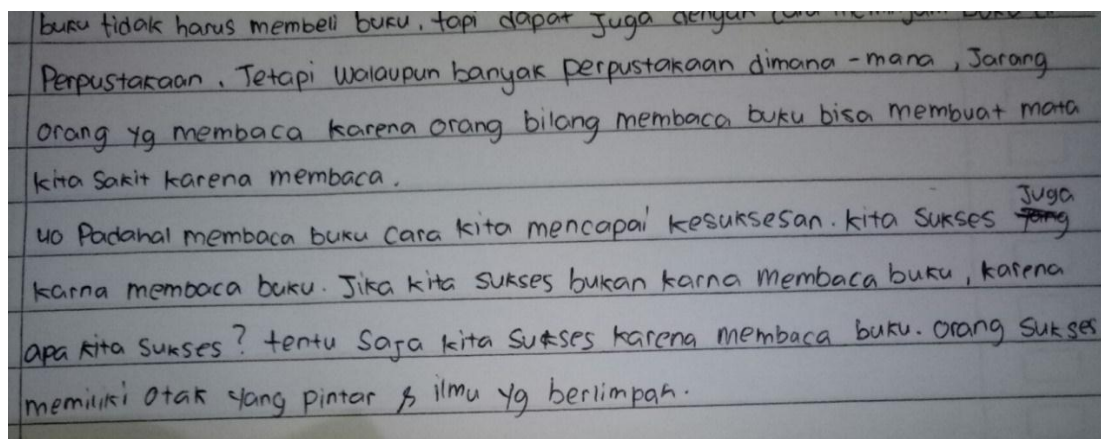 buku tidak harus membeli buku, tapi dapat Juga dengan cara
Perpustakaan. Tetapi walaupun banyak perpustakaan dimana-mana, Jarang
orang yg membaca karena orang bilang membaca buku bisa membuat mata
kita Sakit karena membaca.
Juga
40 Padahal membaca buku cara kita mencapai kesuksesan. kita sukses
karna membaca buku. Jika kita sukses bukan karna membaca buku, karena
apa kita sukses? tentu Saja kita Sukses karena membaca buku. orang sukses
memiliki otak yang pintar & ilmu yg berlimpah.